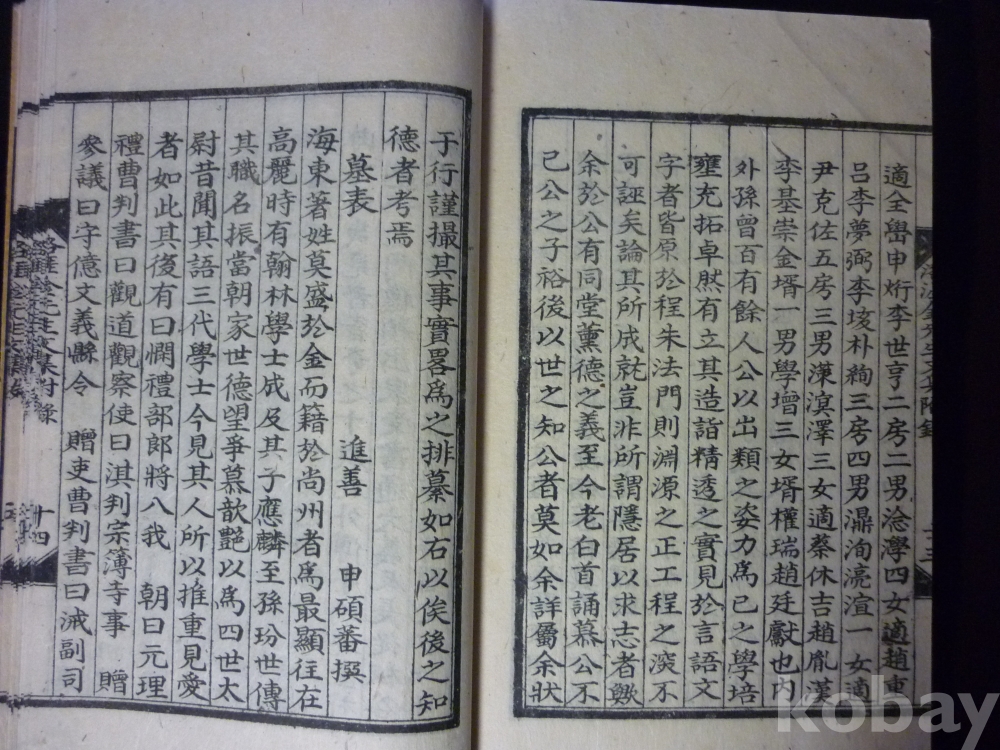 適全嶨申烆李世亨二房二男淰㶅四女適趙重
呂李夢弼李垓朴絢三房四男濷洵濠渲一女適
尹克佐五房三男漢滇澤三女適蔡休吉趙胤漢
李基崇金壻一男學增三女壻權瑞趙廷獻也內
外孫曾百有餘人公以出類之姿力爲已之學培
壅充拓卓然有立其造詣精透之實見於言語文
字者皆原於程朱法門則淵源之正工程之深不
可誣矣論其所成就豈非所謂隱居以求志者歟
余於公有同堂薰德之義至今老白首誦慕公不
已公之子裕後以世之知公者莫如余詳屬余狀
于行謹撮其事實畧爲之排纂如右以俟後之知
德者考焉
墓表 進善 申碩蕃撰
海東著姓莫盛於金而籍於尚州者爲最顯往在
高麗時有翰林學士成及其子應麟至孫玢世傳
其職名振當朝家世德望爭慕歆艷以爲四世太
尉昔聞其語三代學士今見其人所以推重見愛
者如此其後有曰憪禮部郎將八我 朝曰元理
禮曹判書曰觀道觀察使曰淇判宗簿寺事 贈
參議曰字億文義縣令 贈吏曹判書曰誠副司
先生文集附錄
十四
kobay